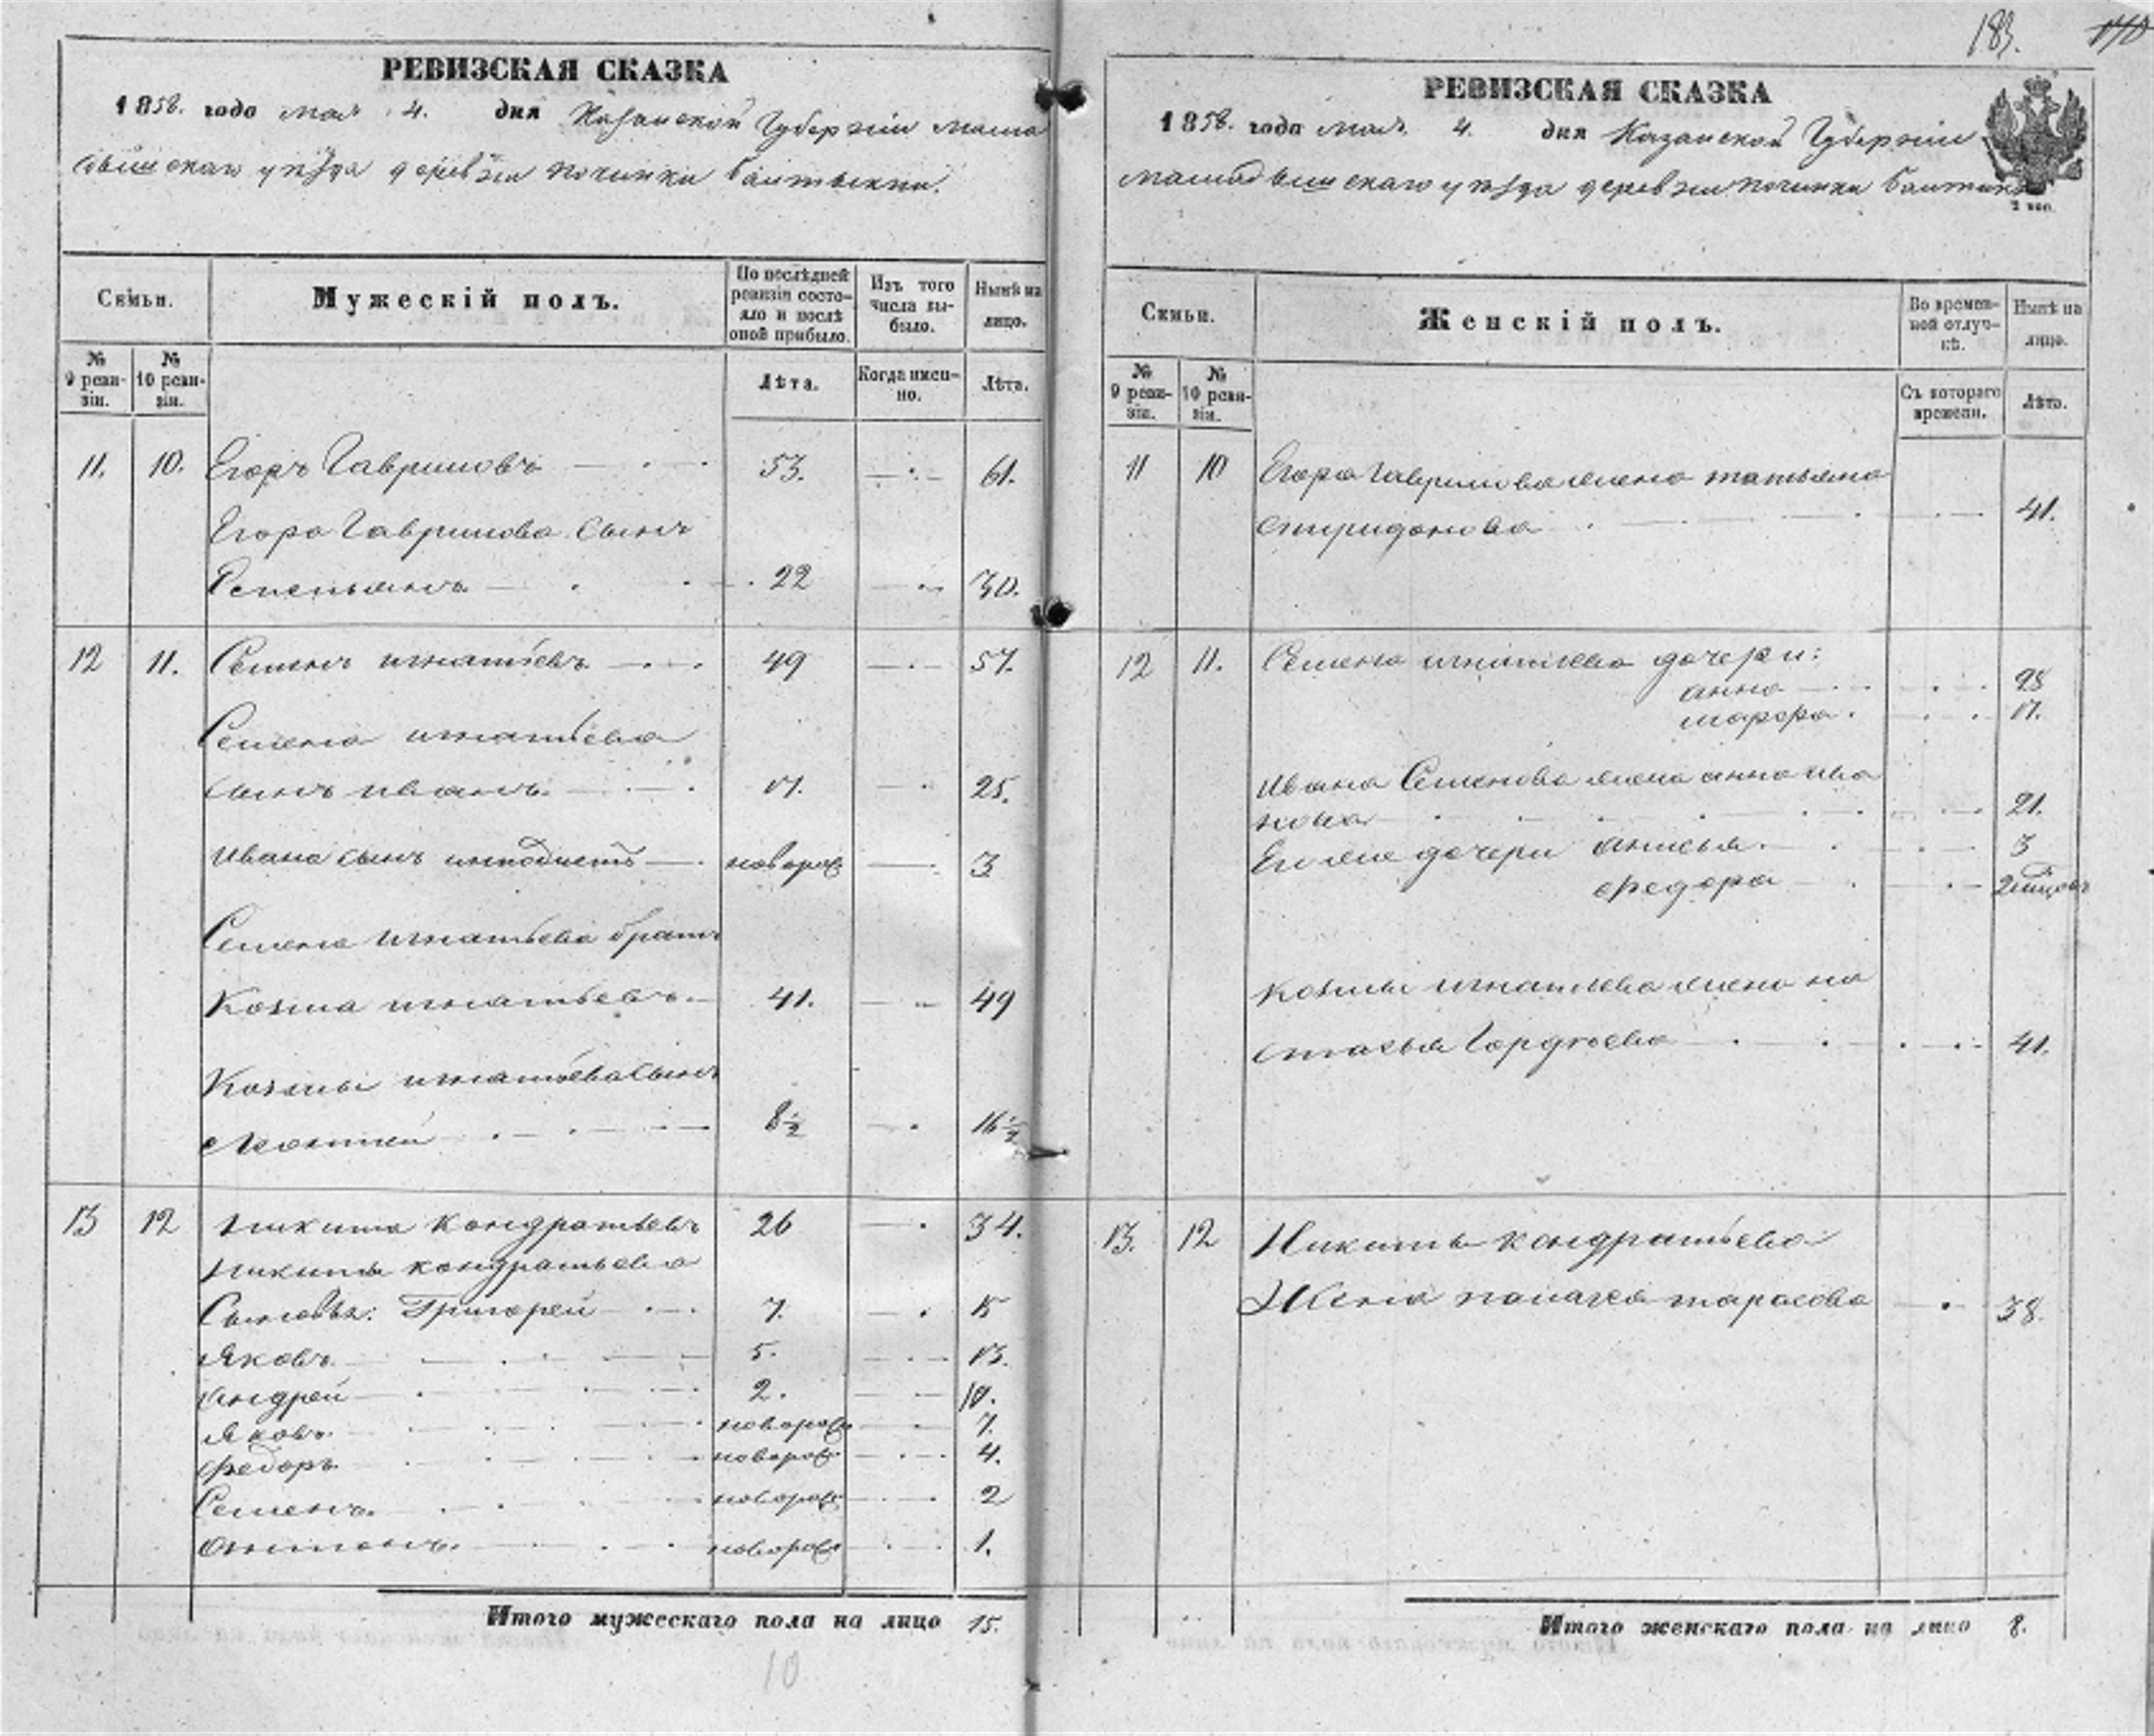 РЕВИЗСКАЯ СКАЗКА
1858. года мая 4. дня Казанской Губернии мама
дышскаго уѣзда деревни починки
Семьи.
Мужескій полъ.
По послѣдней ревизіи состояло и послѣ оной прибыло.
Изъ того числа выбыло.
Нынѣ на лицо.
№ 9 ревизіи.
№ 10 ревизіи.
Лѣта.
Когда именно.
Лѣта.
11. 10. Егоръ Гавриловъ 53. 61.
Егора Гаврилова сынъ
22 30.
12 11. Семенъ игнатьевъ 49 57.
Семена игнатьева
сынъ иванъ. 17. 25.
Ивана сынъ новорож 3
Семена Игнатьева братъ
Козма игнатьевъ. 41. 49
Козмы игнатьева сынъ
8½ 16½
13 12 Никита Кондратьевъ 26 34.
Никиты кондратьева
Сыновья: Григорей 7. 15
Яковъ 5. 13.
Андрей 2. 10.
Яковъ. новорож 7.
Федоръ новорож 4.
Семенъ. новорож 2
Антонъ. новорож 1.
Итого мужескаго пола на лицо 15.
10
183.
РЕВИЗСКАЯ СКАЗКА
1858. года мая 4. дня Казанской Губернии
мамадышскаго уѣзда деревни починки
Семьи.
Женскій полъ.
Во временной отлучкѣ.
Нынѣ на лицо.
№ 9 ревизіи.
№ 10 ревизіи.
Съ котораго времени.
Лѣта.
11 10 Егора Гаврилова жена татьяна
спиридонова 41.
12 11. Семена игнатьева дочери:
анна 28
марфа. 17.
Ивана Семенова жена анна ива
нова 21.
Ея же дочери анисья. 3
федора
Козмы игнатьева жена на
стасья Гордѣева 41.
13. 12 Никиты кондратьева
Жена палагея тарасова 38.
Итого женскаго пола на лицо 8.